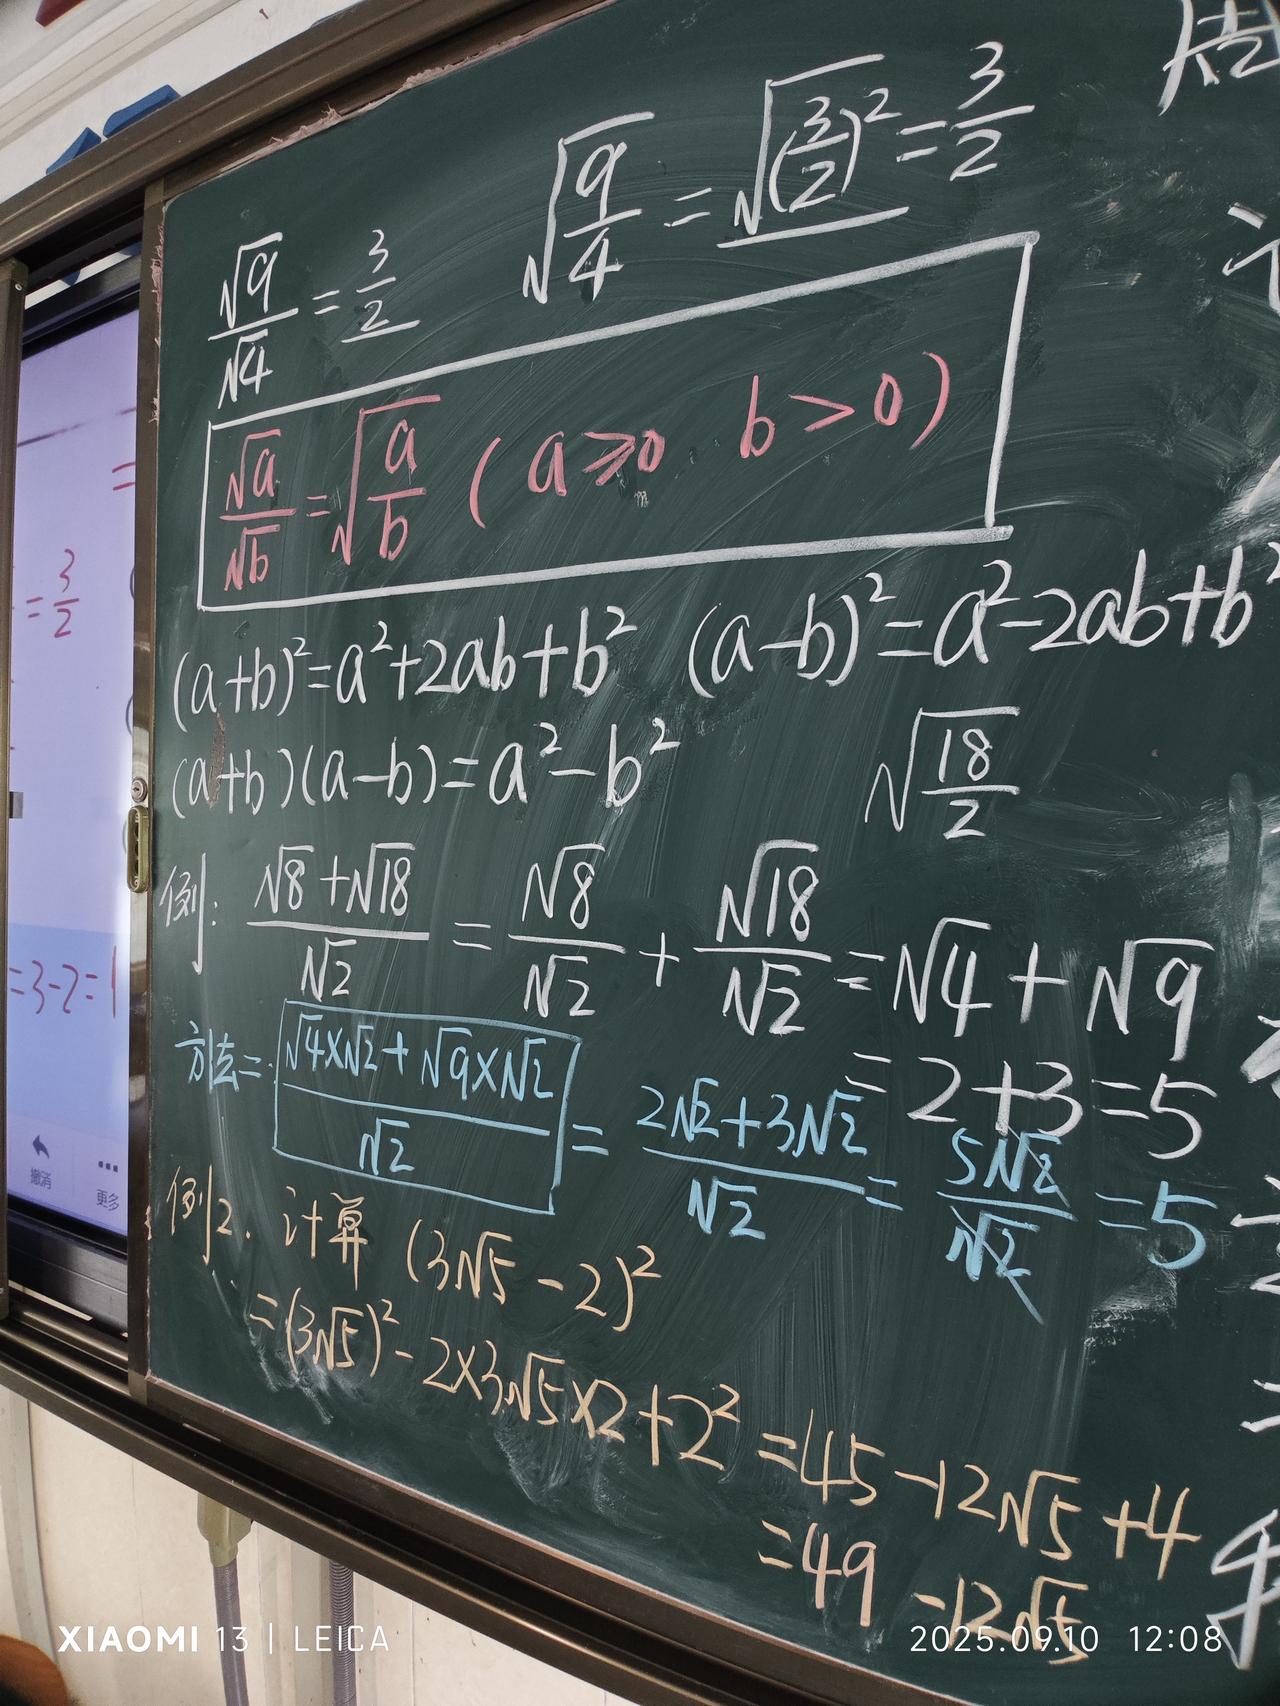 √9/√4 = 3/2
√(9/4) = √((3/2)²) = 3/2
√a/√b = √(a/b) ( a≥0 b>0 )
(a+b)²=a²+2ab+b² (a-b)²=a²-2ab+b²
(a+b)(a-b)=a²-b²
√(18/2)
例: (√8+√18)/√2 = √8/√2 + √18/√2 = √4 + √9
= 2+3=5
方法二: (√4×√2+√9×√2)/√2 = (2√2+3√2)/√2 = 5√2/√2 =5
例2. 计算 (3√5-2)²
=(3√5)²-2×3√5×2+2² =45-12√5+4
=49-12√5
= 3/2
=3-2=1
撤消
更多
XIAOMI 13 | LEICA
2025.09.10 12:08